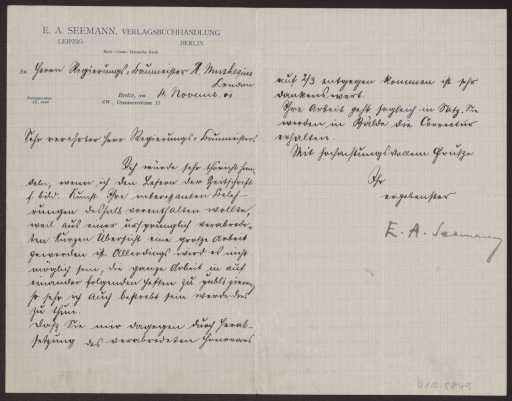 E. A. SEEMANN, VERLAGSBUCHHANDLUNG
LEIPZIG
BERLIN
An Herrn Regierungs-Baumeister H. Muthesius
London
Berlin, den 14 Novemb. 01
Sehr verehrter Herr Regierungs-Baumeister!
Ich würde sehr thöricht han-
deln, wenn ich den Lesern der Zeitschrift
f. bild. Kunst Ihre interessanten Beleh-
rungen deshalb vorenthalten wollte,
weil aus einer ursprünglich verabrede-
ten kurzen Übersicht eine große Arbeit
geworden ist. Allerdings wird es nicht
möglich sein, die ganze Arbeit in auf
einander folgenden Heften zu publizieren,
so sehr ich auch bestrebt sein werde dies
zu thun.
Daß Sie mir dagegen durch Herab-
setzung des verabredeten Honorars
auf 2/3 entgegen kommen ist sehr
dankenswert.
Ihre Arbeit geht sogleich in Satz. Sie
werden in Bälde die Correctur
erhalten.
Mit hochachtungsvollem Gruße
Ihr
ergebenster
E. A. Seemann